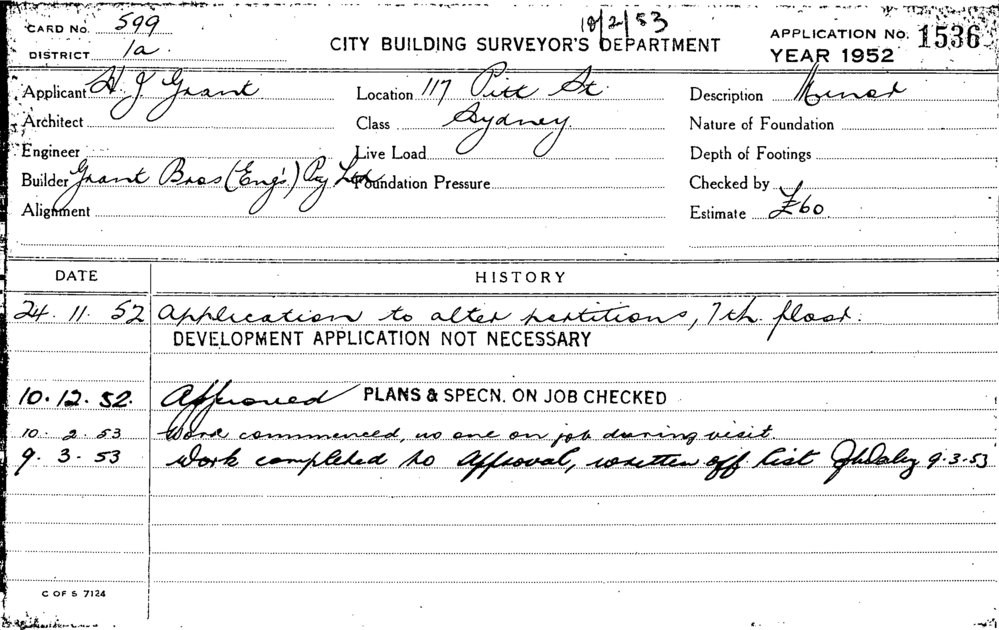 CARD No. 599
DISTRICT 1a
10/2/53
CITY BUILDING SURVEYOR'S DEPARTMENT
APPLICATION No. 1536
YEAR 1952
Applicant H. J Grant
Location 117 Pitt St.
Description Minor
Architect
Class Sydney.
Nature of Foundation
Engineer
Live Load
Depth of Footings
Builder Grant Bros (Eng's.) Pty Ltd
Foundation Pressure
Checked by
Alignment
Estimate £60.
DATE HISTORY
24. 11. 52 Application to alter partitions, 7th. floor.
DEVELOPMENT APPLICATION NOT NECESSARY
10.12.52. Approved PLANS & SPECN. ON JOB CHECKED
10. 2. 53 Work commenced, no one on job during visit.
9. 3. 53 Work completed to Approval, written off list 9.3.53
C OF S 7124